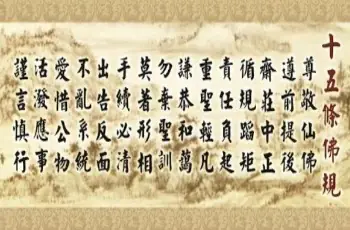 十五條佛規
尊敬仙佛
遵前提後
齋莊中正
循規蹈矩
責任負起
重聖輕凡
謙恭和藹
勿棄聖訓
莫著形相
手續必清
出告反面
不亂系統
愛惜公物
活潑應事
謹言慎行